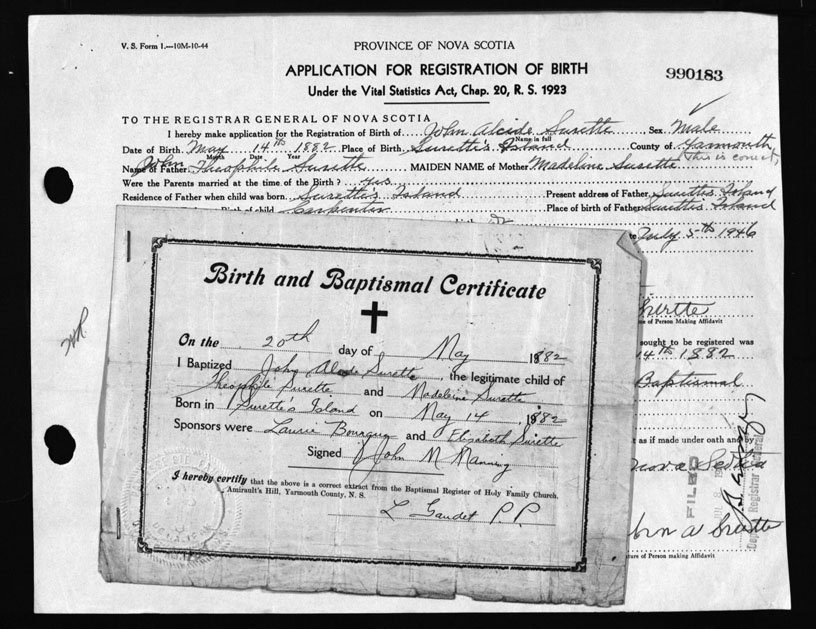 V. S. Form 1.—10M-10-44
PROVINCE OF NOVA SCOTIA
APPLICATION FOR REGISTRATION OF BIRTH
990183
Under the Vital Statistics Act, Chap. 20, R. S. 1923
TO THE REGISTRAR GENERAL OF NOVA SCOTIA
I hereby make application for the Registration of Birth of John Alcide Surette Sex Male
Name in full
Date of Birth May 14th 1882 Place of Birth Surette's Island County of Yarmouth
Month Date Year
(This is correct)
Name of Father John Theophile Surette MAIDEN NAME of Mother Madeline Surette
Were the Parents married at the time of the Birth? yes
Residence of Father when child was born Surette's Island Present address of Father Surette's Island
Birth of child Carpenter Place of birth of Father Surette's Island
July 5th 1946
Birth and Baptismal Certificate
On the 20th day of May 1882
I Baptized John Alcide Surette, the legitimate child of
Theophile Surette and Madeleine Surette
Born in Surette's Island on May 14 1882
Sponsors were Bourque and Elisabeth Surette
Signed John M Manning
I hereby certify that the above is a correct extract from the Baptismal Register of Holy Family Church,
Amirault's Hill, Yarmouth County, N. S.
L Gaudet P.P.
Surette
of Person Making Affidavit
sought to be registered was
14th 1882
Baptismal
t as if made under oath and by
Nova Scotia
FILED
Deputy Registrar General
John A Surette
ture of Person making Affidavit